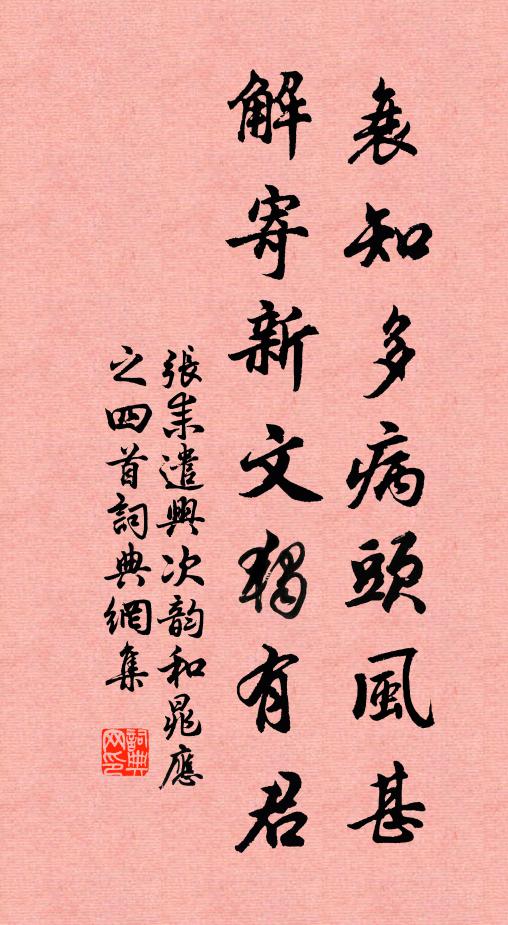 衰知多病頭風甚
解寄新文獨有君
張耒遣興次韵和晁應
之四首詞典網集
詞典網印